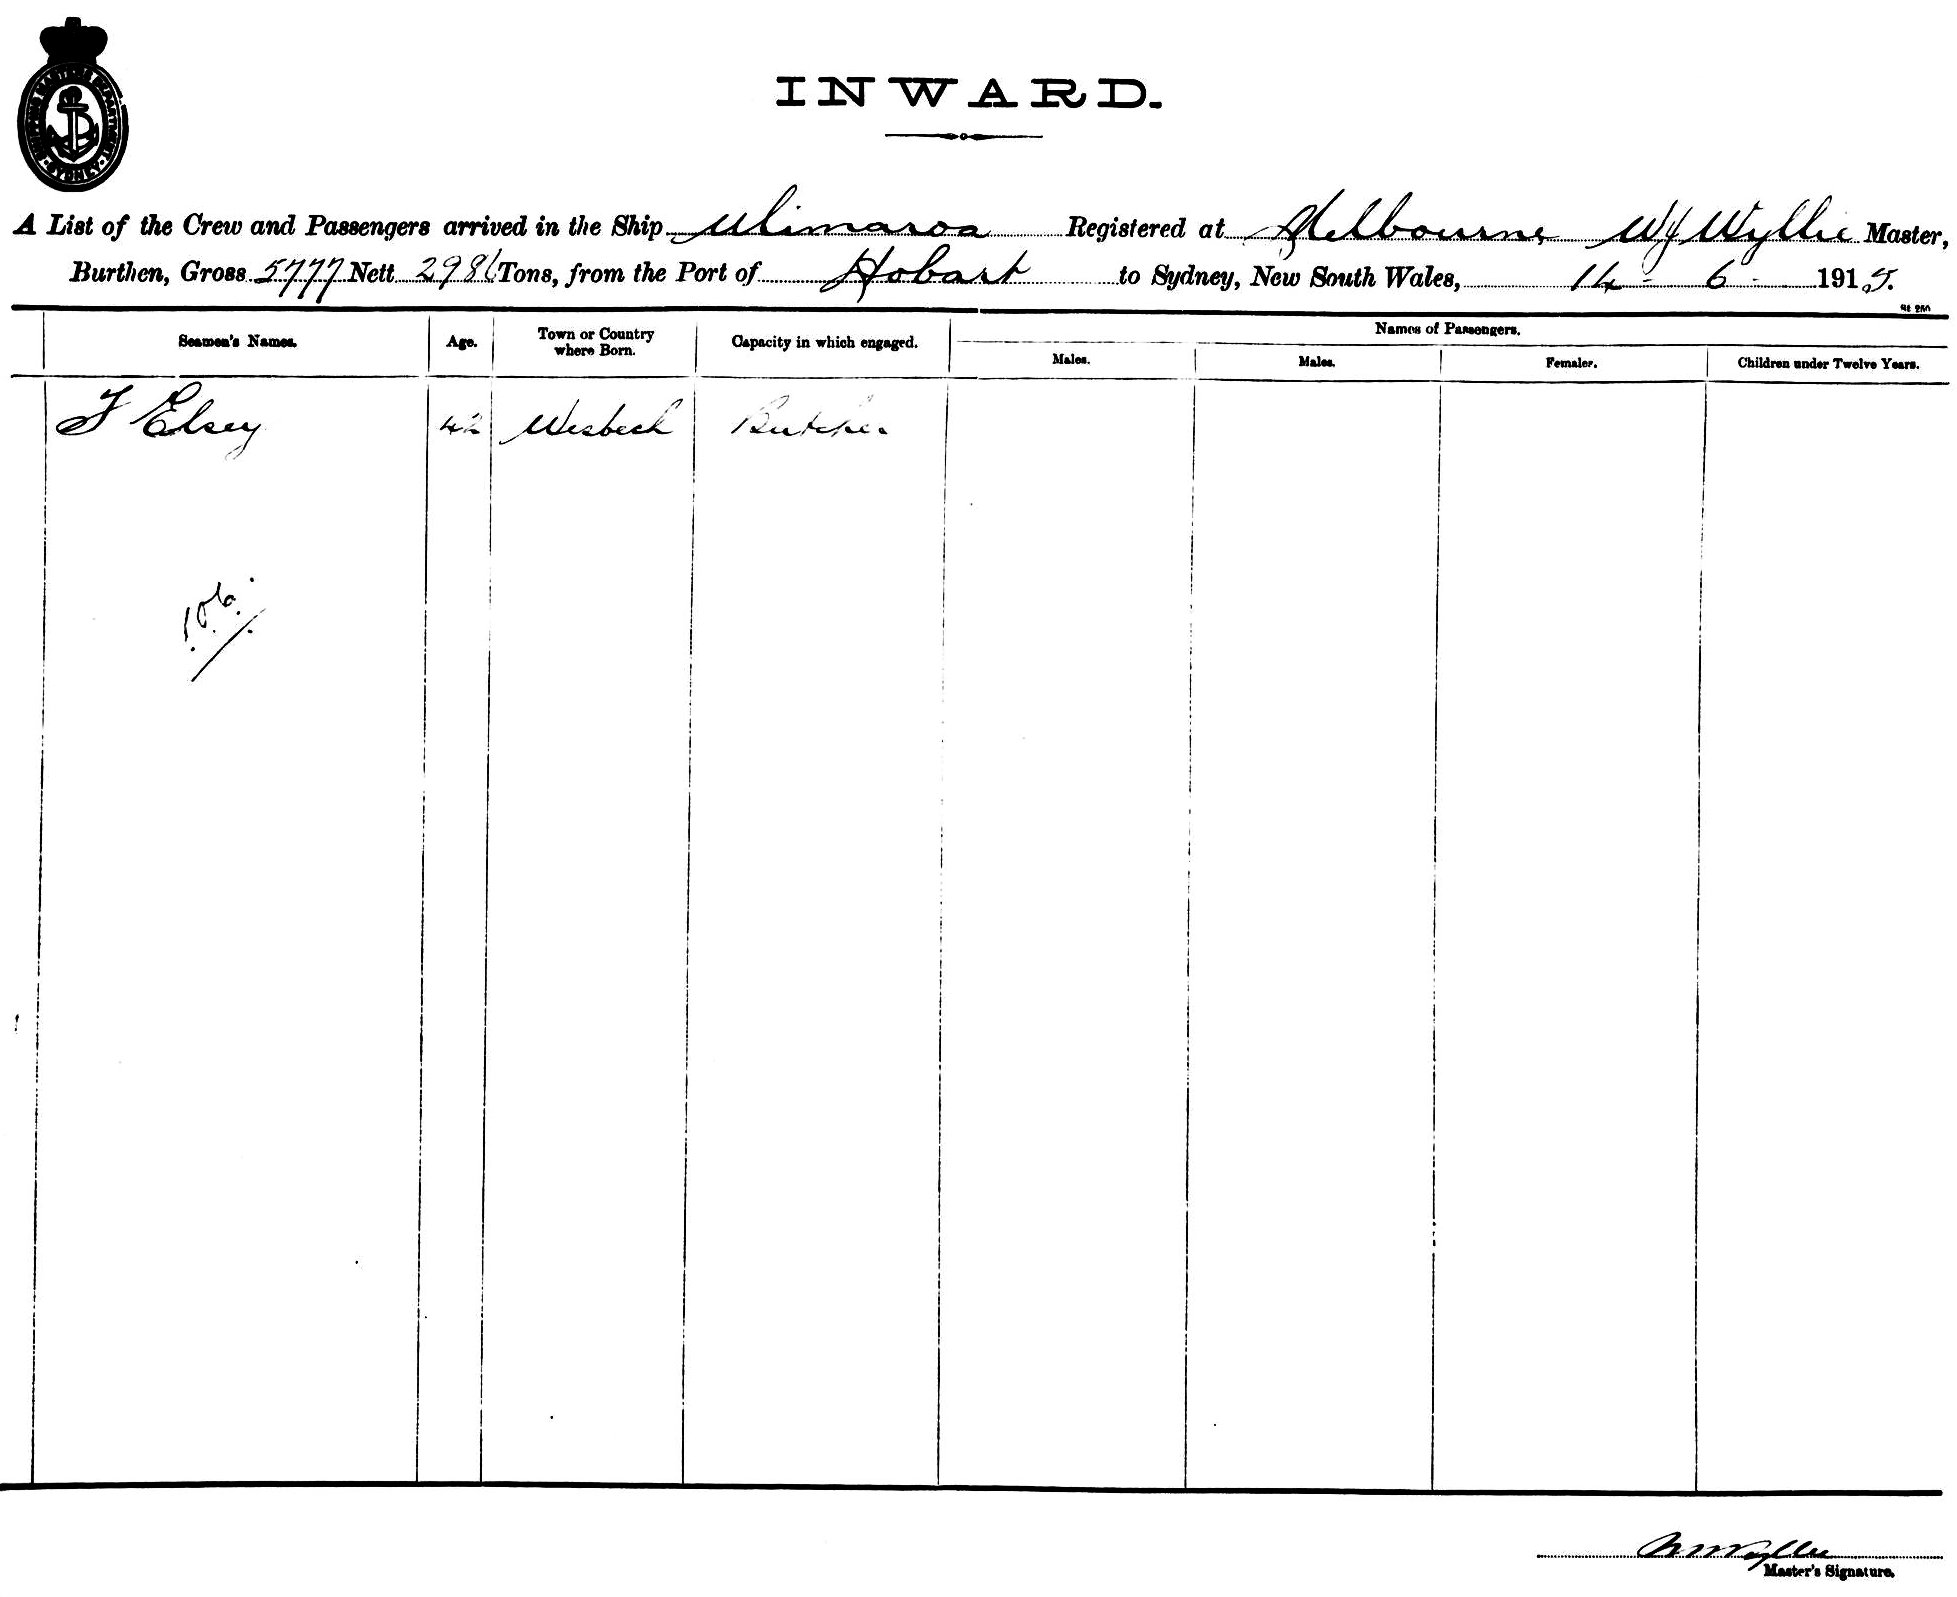 SHIPPING MASTERS DEPARTMENT SYDNEY
INWARD.
A List of the Crew and Passengers arrived in the Ship Ulimaroa Registered at Melbourne WJ Wyllie Master,
Burthen, Gross 5777 Nett 2986 Tons, from the Port of Hobart to Sydney, New South Wales, 14 - 6 - 1915.
Seamen's Names. Age. Town or Country where Born. Capacity in which engaged. Names of Passengers.
Males. Males. Females. Children under Twelve Years.
F Elsey 42 Wisbech Butcher
106
WJWyllie
Master's Signature.